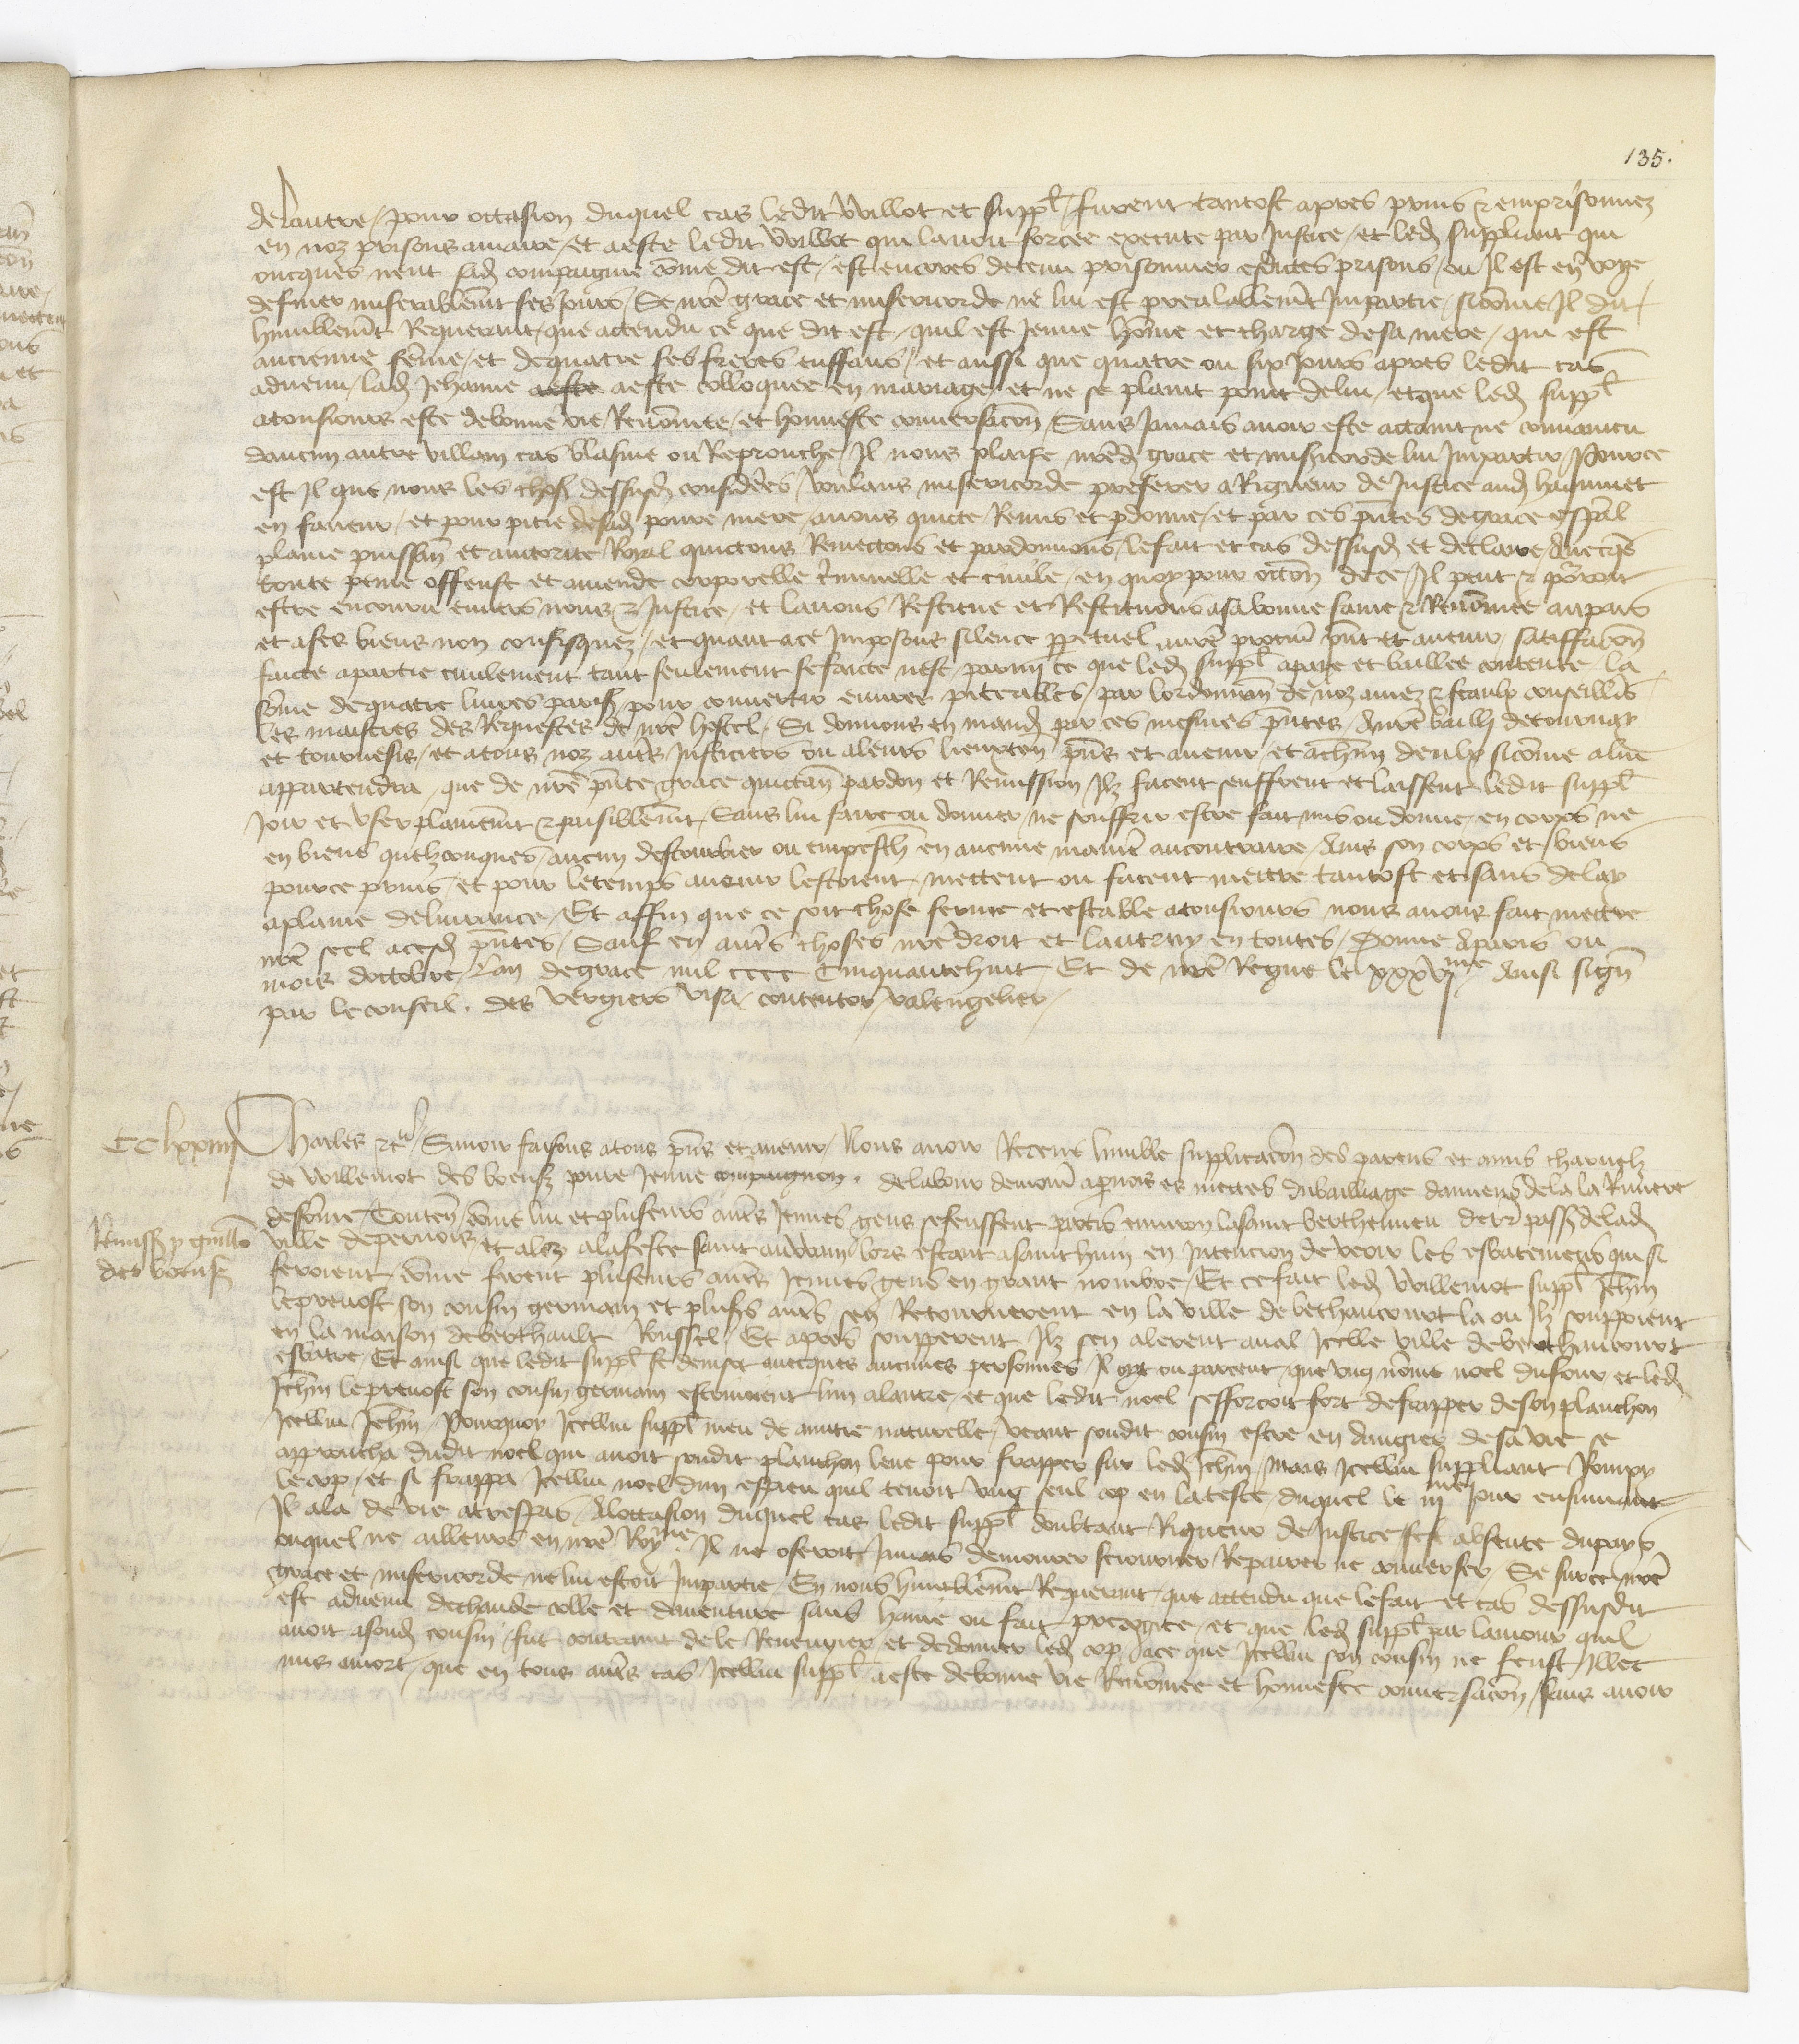 135.
de lautre / pour occasion duquel cas ledit Willot et suppl / furent tantost apres prins & emprisonnez
en noz prisons / et a este ledit Willot qui lavoit forcee execute par Justice / et led suppliant qui
oncques neut sad compaignie come dit est / est encores detenu prisonnier esdictes prisons / ou Il est en voye
de finer miserablemt ses Jours / Se nre grace et misericorde ne lui est prealablemt Impartie / sicome Il dit /
humblemt Requerant / que actendu ce que dit est / quil est Jeune home et charge de sa mere / qui est
ancienne feme / et de quatre ses freres enffans / et aussi que quatre ou six Jours apres ledit cas
advenu / lad Jehanne a este colloquee en mariage / et ne se plaint point de lui / et que led suppl
a tousiours este de bonne vie / Renomee / et honneste conversacon / Sans Jamais avoir este actaint ne convaincu
daucun autre villain cas blasme ou Reprouche / Il nous plaise nred grace et misericorde lui Impartir / Pource
est Il que nous les chos dessusd considerees / voulans misericorde preferer a Rigueur de Justice aud hannuet
en faveur / et pour pitie de sad povre mere / avons quicte / Remis et pdonne / et par ces pntes de grace espal
plaine puissan et auctorite Royal quictons Remectons et pardonnons / le fait et cas dessusd et declaire / Avecqs
toute peine offense et amende corporelle criminelle et civile / en quoy pour occon de ce / Il peut & porroit
estre encouru envers nous & Justice / et lavons Restitue et Restituons a sa bonne fame & Renomee au pais
et a ses biens non confisquez / et quant a ce Imposons silence ppetuel a nre procur pnt et avenir / satiffacon
faicte a partie civilement tant seulement se faicte nest / parmy ce que led suppl a paye et baillee contente la
some de quatre livres paris / pour convertir en euvres piteables / par lordonnan de noz amez & feaulx conseillrs
les maistres des Requestes de nre hostel / Si donnons en mand par ces mesmes pntes / A nre bailly de tournay
et tournesis / et a tous noz autrs Justiciers ou a leurs lieuxten pns et avenir / et a chun deulx sicome a lui
appartendra / que de nre pnte grace quictan pardon et Remission / Ilz facent seuffrent et laissent ledit suppl
Joir et user plainemt & paisiblemt / Sans lui faire ou donner / ne souffrir estre fait mis ou donne / en corps ne
en biens quelzconques / aucun destourbier ou empeschm en aucune maniere au contraire / Ains son corps et / biens
pource prins / et pour le temps avenir lestoient / mettent ou facent mectre tantost et sans delay
a plaine delivrance / Et affin que ce soit chose ferme et estable a tousiours nous avons fait mettre
nre seel a cesd pntes / Sauf en autrs choses nre droit et lautruy en toutes / Donne A paris ou
mois doctobre / Lan de grace mil cccc Cinquante huit Et de nre Regne le xxxvi me Ainsi sign
par le conseil. Des vergiers visa / contentor / valengelier /
CC lxxiiij
Charles &c Savoir faisons a tous pns et avenir / Nous avoir Receue humble supplicacon des parens et amis charnelz
de Willemot des boeufz povre Jeune compaignon. de labour demour a pernois es mettes du bailliage damiens de la la Riviere
de some / Conten / come lui et plusieurs autrs Jeunes gens se feussent partis environ la saint berthelemieu derr passe de lad
Remiss p guillo
des boeufz
ville de pernois et alez a la feste saint lors estant a saint hun en Intencion de veoir les esbatemens qui si
feroient / come firent plusieurs autrs Jeunes gens en grant nombre / Et ce fait led Willemot suppl Jehn
le prevost son cousin germain et plusrs autrs sen Retournerent en la ville de bethancourt la ou Ilz soupperent
en la maison de berthault Roussel / Et apres soupperent Ilz sen alerent aval Icelle ville de bethancourt
esbatre / Et ainsi que ledit suppl se devisoit avecques aucunes personnes / Il oyt ou parceut / que ung nome noel dufour et led
Jehn le prevost son cousin germain estrivoient lun a lautre / et que ledit noel sefforcoit fort de frapper de son planchon
Icellui Jehn / Pourquoy Icellui suppl meu de amitie naturelle / veant sondit cousin estre en dangier de sa vie se
approucha dudit noel qui avoit sondit planchon leve pour frapper sur led Jehn / Mais Icellui suppliant Rompy
le cop / et si frappa Icellui noel dun espieu quil tenoit ung seul cop en la teste / duquel le iij me Jour ensuivant
Il ala de vie a trespas / A loccasion duquel cas ledit suppl doubtant Rigueur de Justice sest absente du pays
ouquel ne ailleurs en nre Royme Il ne oseroit Jamais demourer seiourner Repairer ne converser / Se sur ce nre
grace et misericorde ne lui estoit Impartie / En nous humblemt Requerant / que actendu que le fait et cas dessusdit
est advenu de chaude colle et daventure sans hayne ou fait precogite / et que led suppl par lamour quil
avoit a sond cousin / fut contraint de le Revengier / et de donner led cop / a ce que Icellui son cousin ne feust Illec
mis a mort / que en tous autrs cas Icellui suppl a este de bonne vie Renomee et honneste conversacon / sans avoir